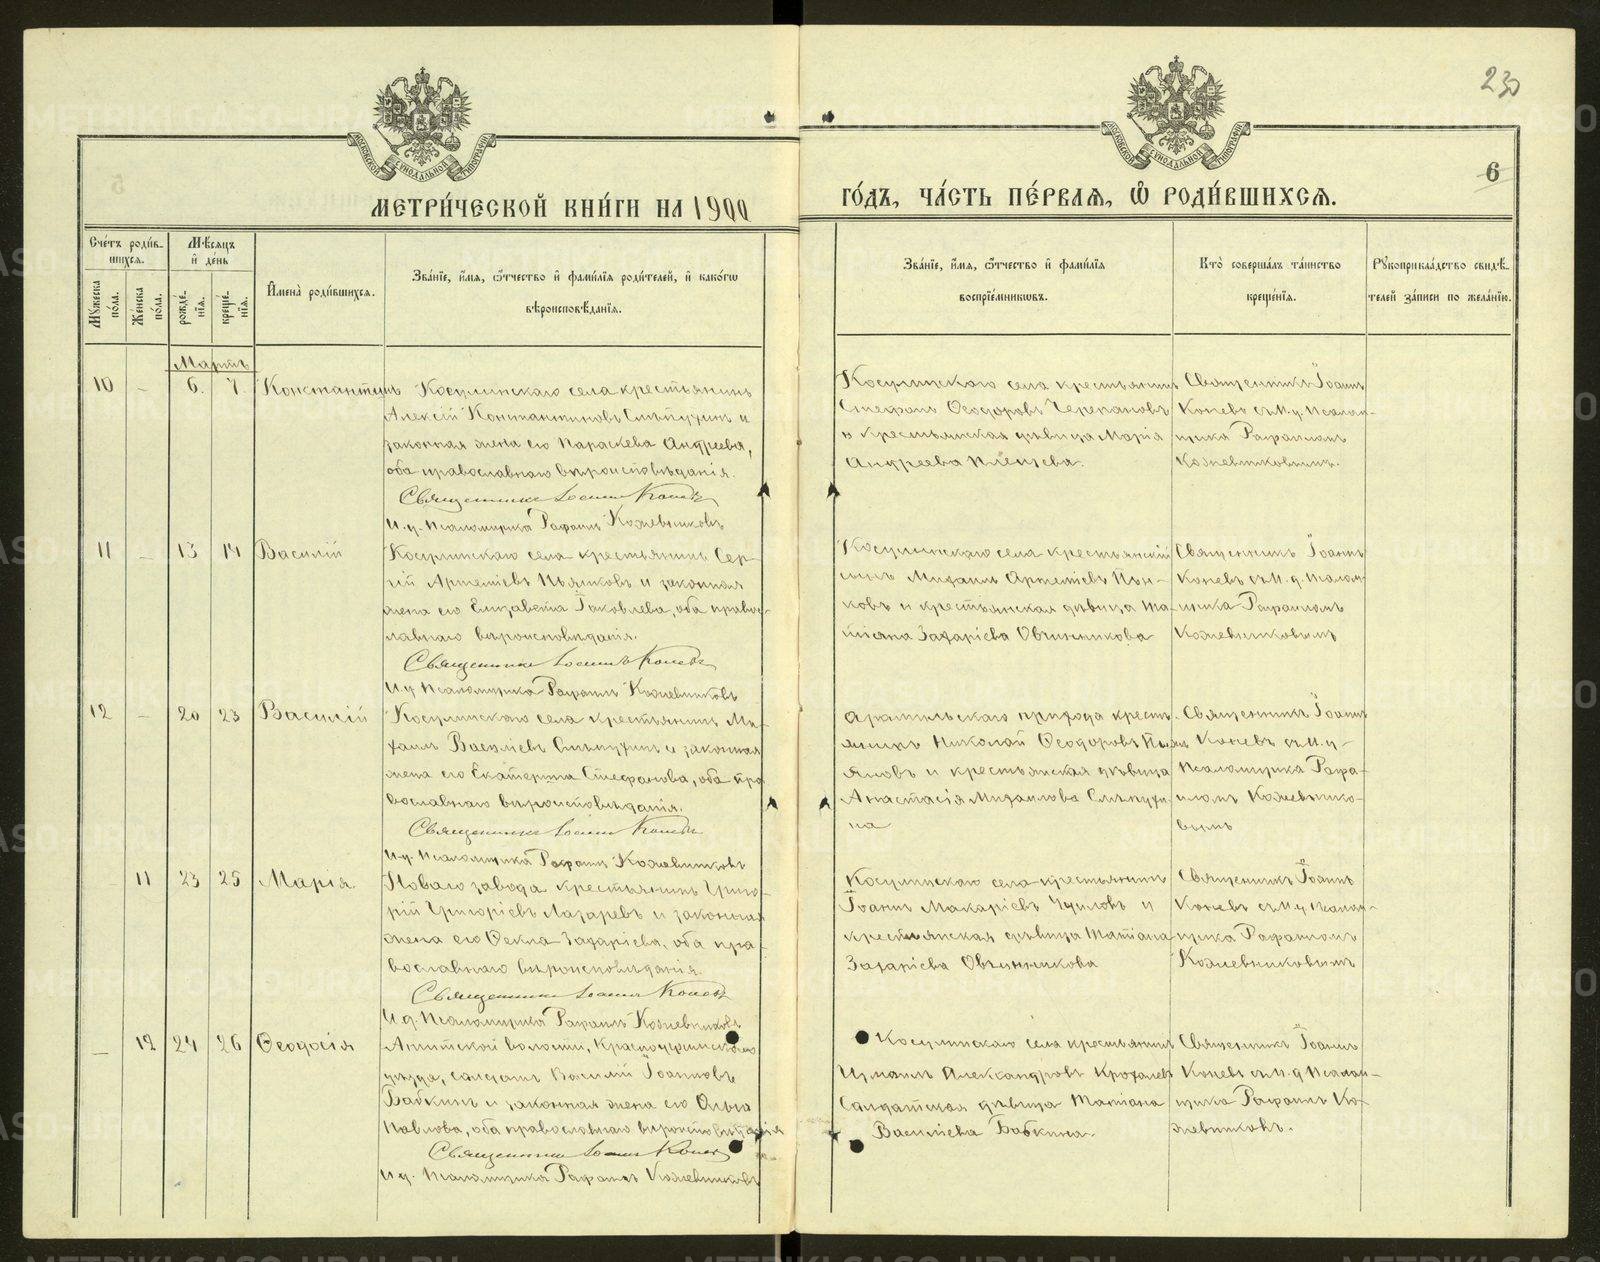 230
6
МЕТРИ́ЧЕСКОЙ КНИ́ГИ НА 1900
ГО́ДЪ, ЧА́СТЬ ПЕ́РВАЯ, Ѽ РОДИ́ВШИХСЯ.
Сче́тъ роди́вшихся.
Мꙋ́жеска по́ла.
Же́нска по́ла.
Мѣ́сяцъ и҆ де́нь
рожде́нїя.
креще́нїя.
И҆мена̀ роди́вшихся.
Зва́нїе, и҆́мя, ѻ҆́тчество и҆ фами́лїя роди́телей, и҆ како́гѡ
вѣроисповѣ́данїя.
Зва́нїе, и҆́мя, ѻ҆́тчество и҆ фами́лїя
воспрїе́мникѡвъ.
Кто̀ соверша́лъ та́инство
креще́нїя.
Рꙋкоприкла́дство свидѣ́телей за́писи по жела́нїю.
Мартъ
10 - 6. 7. Константинъ
Косулинскаго села крестьянинъ
Алексій Константиновъ Слѣпухинъ и
законная жена его Параскева Андреева,
оба православнаго вѣроисповѣданія.
Священникъ Іоаннъ Коневъ
И. д. Псаломщика Рафаилъ Кожевниковъ
Косулинскаго села крестьянинъ
Стефанъ Ѳеодоровъ Черепановъ
и крестьянская дѣвица Марія
Андреева
Священникъ Іоаннъ
Коневъ съ И. д. Псалом-
щика Рафаиломъ
Кожевниковымъ.
11 - 13 14 Василій
Косулинскаго села крестьянинъ Сер-
гій Артеміевъ Пьянковъ и законная
жена его Елизавета Іаковлева, оба право-
славнаго вѣроисповѣданія.
Священникъ Іоаннъ Коневъ
И. д. Псаломщика Рафаилъ Кожевниковъ
Косулинскаго села крестьянскій
сынъ Михаилъ Артеміевъ Пьян-
ковъ и крестьянская дѣвица Та-
тіана Захаріева Овчинникова
Священникъ Іоаннъ
Коневъ съ И. д. Псалом-
щика Рафаиломъ
Кожевниковымъ
12 - 20 23 Василій
Косулинскаго села крестьянинъ Ми-
хаилъ Василіевъ Слѣпухинъ и законная
жена его Екатерина Стефанова, оба пра-
вославнаго вѣроисповѣданія.
Священникъ Іоаннъ Коневъ
И. д. Псаломщика Рафаилъ Кожевниковъ
Арамильскаго прихода кресть-
янинъ Николай Ѳеодоровъ
и крестьянская дѣвица
Анастасія Михаилова Слѣпухи-
на
Священникъ Іоаннъ
Коневъ съ И. д.
Псаломщика Рафа-
иломъ Кожевнико-
вымъ
11 23 25 Марія
Новаго завода крестьянинъ Григо-
рій Григоріевъ Лазаревъ и законная
жена его Ѳекла Захаріева, оба пра-
вославнаго вѣроисповѣданія.
Священникъ Іоаннъ Коневъ
И. д. Псаломщика Рафаилъ Кожевниковъ
Косулинскаго села крестьянинъ
Іоаннъ Макаріевъ и
крестьянская дѣвица Татіана
Захаріева Овчинникова
Священникъ Іоаннъ
Коневъ съ И. д. Псалом-
щика Рафаиломъ
Кожевниковымъ
- 12 24 26 Ѳеодосія
Ачитской волости, Красноуфимскаго
уѣзда, солдатъ Василій Іоанновъ
Бабкинъ и законная жена его Ольга
Павлова, оба православнаго вѣроисповѣданія
Священникъ Іоаннъ Коневъ
И. д. Псаломщика Рафаилъ Кожевниковъ
Косулинскаго села крестьянинъ
Измаилъ Александровъ Крохалевъ
Солдатская дѣвица Татіана
Василіева Бабкина.
Священникъ Іоаннъ
Коневъ съ И. д. Псалом-
щика Рафаилъ Ко-
жевниковъ.
METRIKI.GASO-URAL.RU